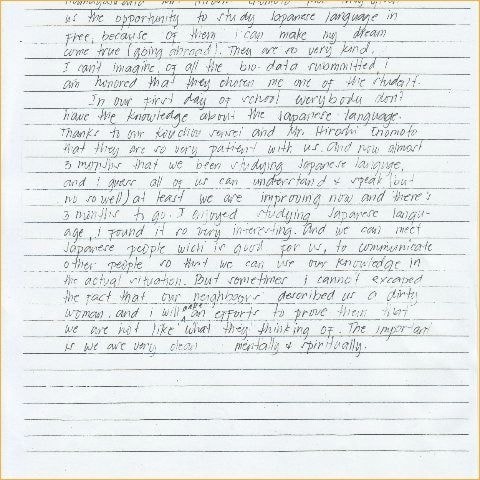 us the opportunity to study Japanese language in
free, because of them i can make my dream
come true (going abroad). They are so very kind.
I can't imagine, of all the bio-data submmitted i
am honored that they chosen me one of the student.
In our first day of school everybody don't
have the knowledge about the Japanese language.
Thanks to our Kouchou sensei and Mr. Hiroshi Enomoto
that they are so very patient with us. And now almost
3 months that we been studying Japanese languge,
and i guess all of us can understand & speak (but
no so well) at least we are improving now and there's
3 months to go. I enjoyed studying Japanese langu-
age, i found it so very interesting. And we can meet
Japanese people wich is good for us, to communicate
other people so that we can use our knowledge in
the actual situation. But sometimes i cannot excaped
the fact that our neighboors described us a dirty
woman. and i will make an efforts to prove them that
we are not like what they thinking of. The important
is we are very clean mentally & spiritually.